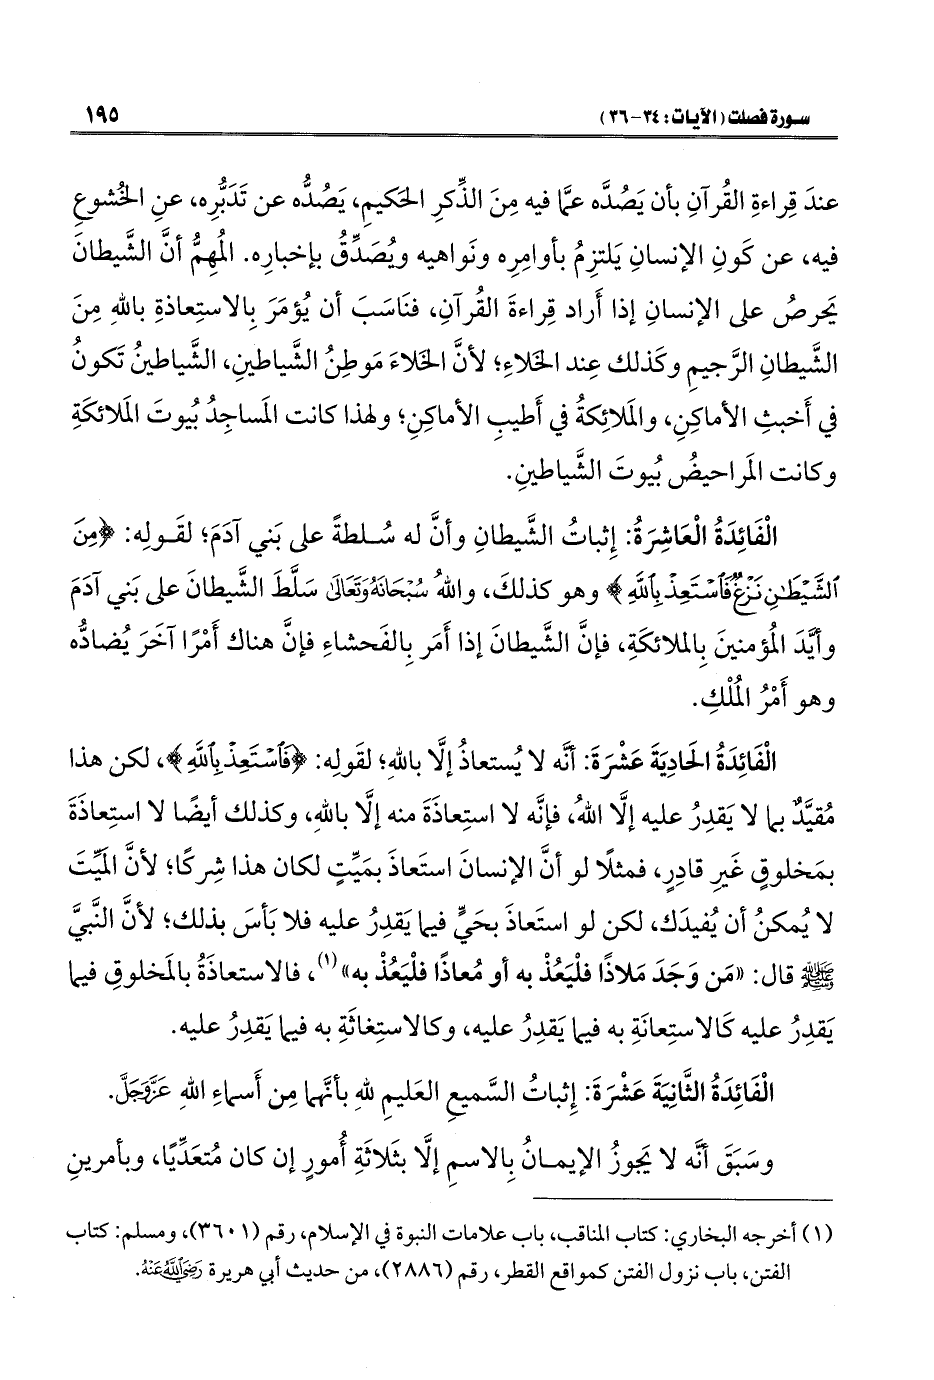 سورة فصلت (الآيات: ٣٤-٣٦)
١٩٥
عندَ قِراءةِ القُرآنِ بأن يَصُدَّه عمَّا فيه مِنَ الذِّكرِ الحَكيمِ، يَصُدُّه عن تَدَبُّرِه، عنِ الخُشوعِ
فيه، عن كَونِ الإنسانِ يَلتزِمُ بأوامِرِه ونَواهيه ويُصَدِّقُ بإخبارِه. المُهِمُّ أنَّ الشَّيطانَ
يَحرِصُ على الإنسانِ إذا أَراد قِراءةَ القُرآنِ، فنَاسَبَ أن يُؤمَرَ بالاستِعاذةِ باللهِ مِنَ
الشَّيطانِ الرَّجيمِ وكَذلك عِند الخَلاءِ؛ لأنَّ الخَلاءَ مَوطِنُ الشَّياطينِ، الشَّياطينُ تَكونُ
في أَخبثِ الأماكِنِ، والمَلائِكةُ في أَطيبِ الأماكِنِ؛ ولهذا كانت المَساجِدُ بُيوتَ المَلائكةِ
وكانت المَراحيضُ بُيوتَ الشَّياطينِ.
الْفَائِدَةُ الْعَاشِرَةُ: إثباتُ الشَّيطانِ وأنَّ له سُلطةً على بَني آدَمَ؛ لقَولِه: ﴿مِنَ
ٱلشَّيْطَٰنِ نَزْغٌ فَٱسْتَعِذْ بِٱللَّهِ﴾ وهو كذلكَ، واللهُ سُبْحَانَهُ وَتَعَالَى سَلَّطَ الشَّيطانَ على بَني آدَمَ
وأَيَّدَ المُؤمنينَ بِالملائكةِ، فإنَّ الشَّيطانَ إذا أمَر بِالفَحشاءِ فإنَّ هناك أَمْرًا آخَرَ يُضادُّه
وهو أَمْرُ المُلْكِ.
الْفَائِدَةُ الحَادِيَةَ عَشْرَةَ: أنَّه لا يُستعاذُ إلَّا باللهِ؛ لقَولِه: ﴿فَٱسْتَعِذْ بِٱللَّهِ﴾، لكن هذا
مُقيَّدٌ بما لا يَقدِرُ عليه إلَّا اللهُ، فإنَّه لا استِعاذَةَ منه إلَّا باللهِ، وكذلك أيضًا لا استِعاذَةَ
بمَخلوقٍ غَيرِ قادِرٍ، فمثلًا لو أنَّ الإنسانَ استَعاذَ بمَيِّتٍ لكان هذا شِركًا؛ لأنَّ المَيِّتَ
لا يُمكنُ أن يُفيدَك، لكن لو استَعاذَ بحَيٍّ فيما يَقدِرُ عليه فلا بَأسَ بذلك؛ لأنَّ النَّبيَّ
ﷺ قال: «مَن وَجَدَ مَلاذًا فلْيَعُذْ به أو مُعاذًا فلْيَعُذْ به»(١)، فالاستعاذَةُ بالمَخلوقِ فيما
يَقدِرُ عليه كَالاستِعانَةِ به فيما يَقدِرُ عليه، وكالاستِغاثَةِ به فيما يَقدِرُ عليه.
الْفَائِدَةُ الثَّانِيَةَ عَشْرَةَ: إثباتُ السَّميعِ العَليمِ للهِ بأنَّهما مِن أَسماءِ اللهِ عَزَّوَجَلَّ.
وسَبَقَ أنَّه لا يَجوزُ الإيمانُ بِالاسمِ إلَّا بثَلاثةِ أُمورٍ إن كان مُتعَدِّيًا، وبأمرينِ
(١) أخرجه البخاري: كتاب المناقب، باب علامات النبوة في الإسلام، رقم (٣٦٠١)، ومسلم: كتاب
الفتن، باب نزول الفتن كمواقع القطر، رقم (٢٨٨٦)، من حديث أبي هريرة رَضِيَ اللَّهُ عَنْهُ.